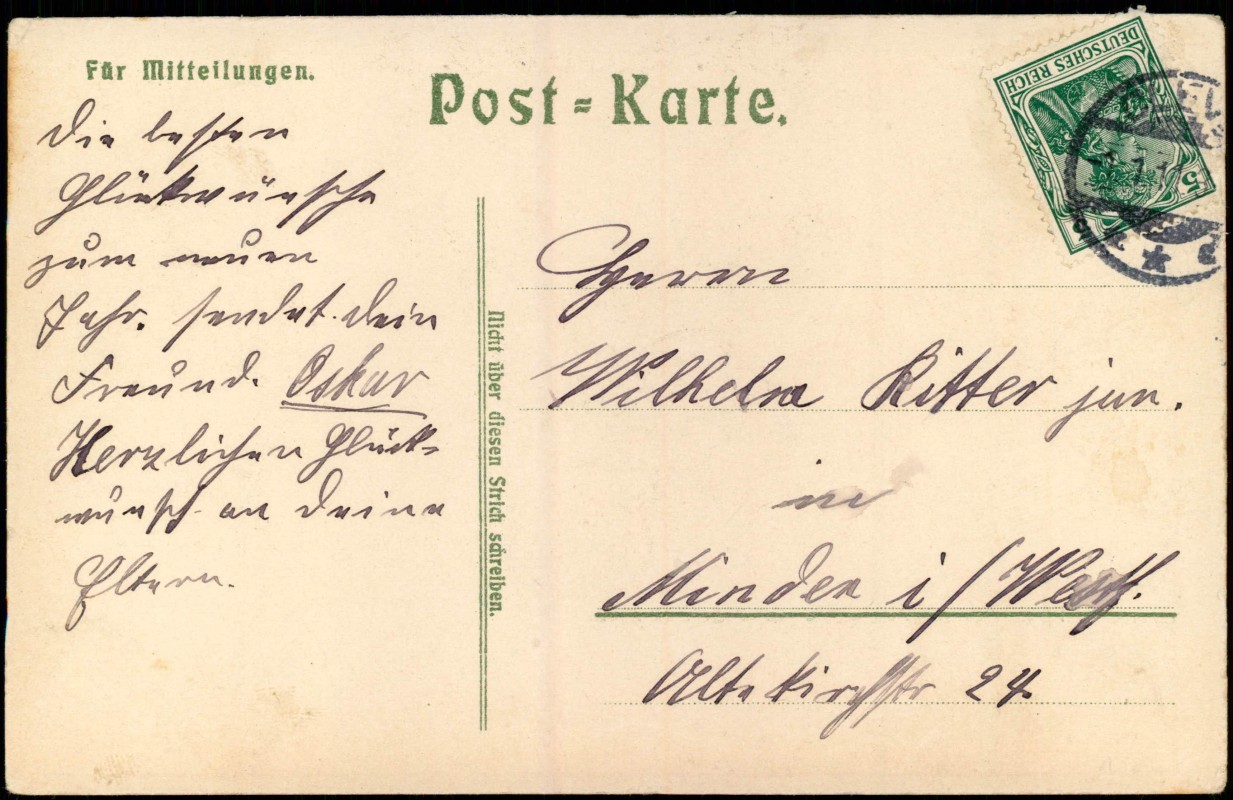 Für Mitteilungen.
Post-Karte.
Die besten
Glückwünsche
zum neuen
Jahr. sendet dein
Freund. Oskar
Herzlichen Glück-
wunsch an deine
Eltern.
Nicht über diesen Strich schreiben.
DEUTSCHES REICH
5
5
1.11
Herrn
Wilhelm Ritter jun.
in
Minden i/Westf.
Altekirchstr 24.